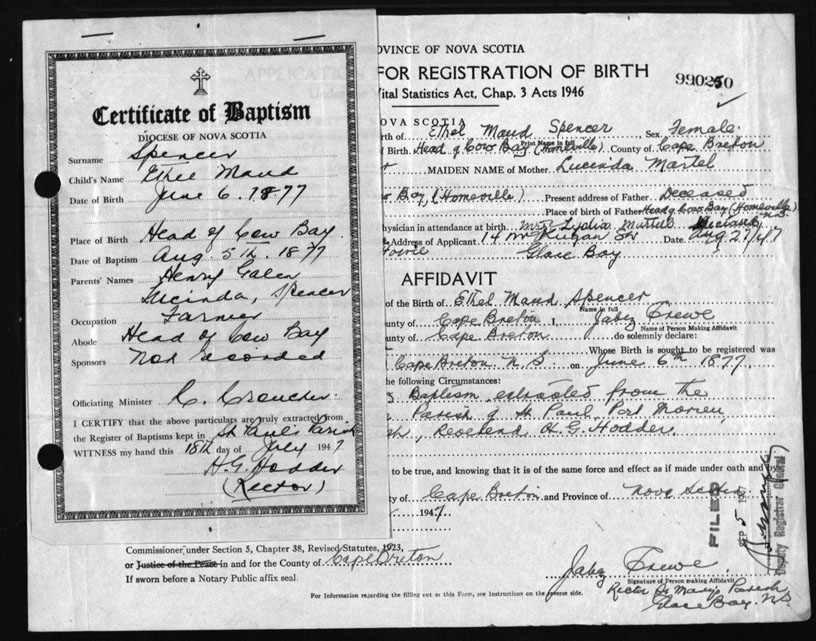 Certificate of Baptism
DIOCESE OF NOVA SCOTIA
Surname Spencer
Child's Name Ethel Maud
Date of Birth June 6. 1877
Place of Birth Head of Cow Bay.
Date of Baptism Aug. 5th. 1877
Parents' Names Henry Galen
Lucinda, Spencer
Occupation Farmer
Abode Head of Cow Bay
Sponsors Not recorded
Officiating Minister C. Croucher.
I CERTIFY that the above particulars are truly extracted from
the Register of Baptisms kept in St Paul's Parish
WITNESS my hand this 18th day of July 1947
H. G. Hodder
(Rector)
OVINCE OF NOVA SCOTIA
FOR REGISTRATION OF BIRTH
990250
Vital Statistics Act, Chap. 3 Acts 1946
OVA SCOTIA
rth of Ethel Maud Spencer Sex Female.
Print Name in full
f Birth. Head of Cow Bay (Homeville). County of Cape Breton
MAIDEN NAME of Mother Lucinda Martel
Bay, (Homeville) Present address of Father Deceased
Place of birth of Father Head of Cow Bay (Homeville) N.S
ysician in attendance at birth Mrs Lydia Martell Deceased
Address of Applicant 14 Date. Aug 27/47
Glace Bay
AFFIDAVIT
of the Birth of Ethel Maud Spencer
Name in full
unty of Cape Breton I, Jabez Crewe
Name of Person Making Affidavit
unty of Cape Breton do solemnly declare:
Whose Birth is sought to be registered was
Cape Breton N S on June 6th 1877.
he following Circumstances:
Baptism extracted from the
Parish of St Paul, Port Morien,
Reverend H. G. Hodder.
to be true, and knowing that it is of the same force and effect as if made under oath and by
ty of Cape Breton and Province of Nova Scotia
1947.
FILED
SEP 5
Deputy Registrar General
Commissioner under Section 5, Chapter 38, Revised Statutes, 1923,
or Justice of the Peace in and for the County of Cape Breton
If sworn before a Notary Public affix seal.
Jabez Crewe
Signature of Person making Affidavit
Rector St Mary's Parish
Glace Bay. N.S.
For Information regarding the filling out of this Form, see Instructions on the reverse side.